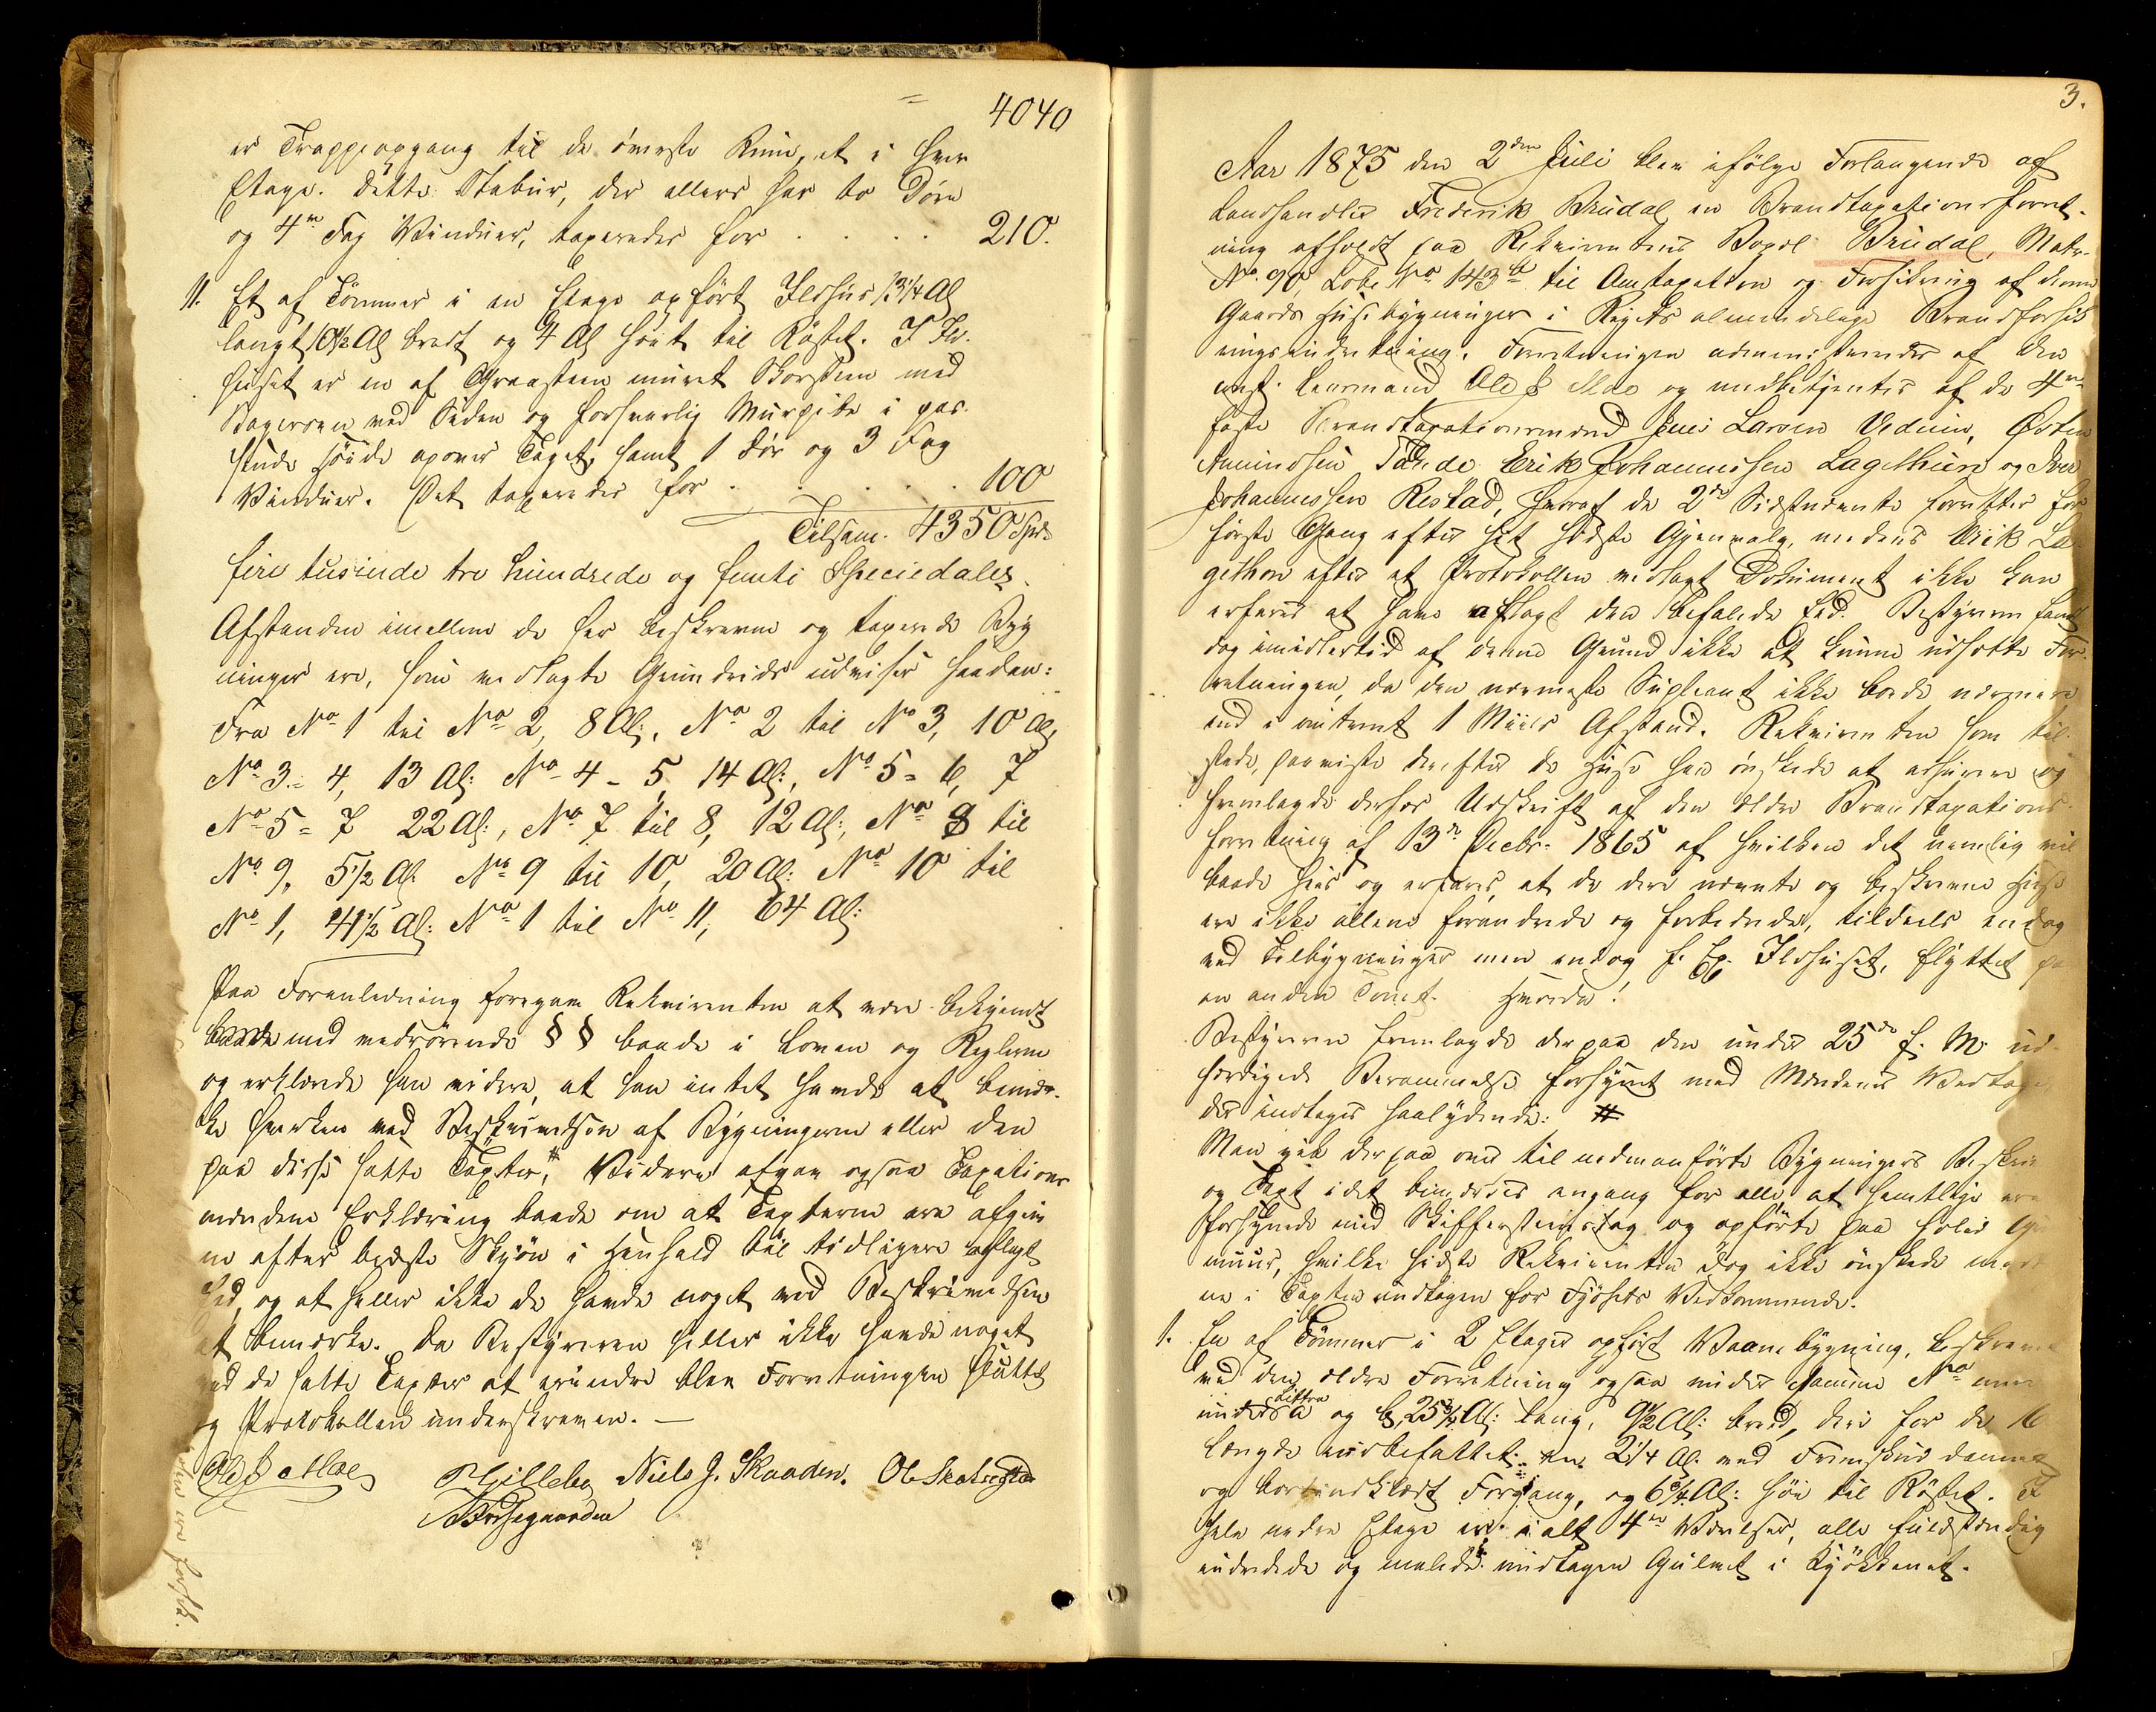 4040
er Trappeopgang til de øverste Rum, et i hver
Etage. Dette Stabur, der ellers har to Døre
og 4re Fag Vinduer, taxeredes for . . . . 210.
11. Et af Tømmer i en Etage opført Ildhus 13 1/4 Al
langt 10 1/2 Al bredt og 4 Al høit til Røstet. I Ild-
huset er en af Graasteen muret Skorsteen med
Bagerovn ved Siden og forsvarlig Murpibe i pas-
sende Høide over Taget, samt 1 Dør og 3 Fag
Vinduer. Det taxeredes for . . . . . 100
Tilsam. 4350 Spd.
fire tusinde tre hundrede og femti Speciedaler.
Afstanden imellem de her beskrevne og taxerede Byg
ninger ere, som vedlagte Grundrids udviser saadan:
Fra No 1 til No 2, 8 Al:, No 2 til No 3, 10 Al,
No 3 = 4, 13 Al: No 4 - 5, 14 Al:, No 5 = 6, 7
No 5 = 7 22 Al:, No 7 til 8, 12 Al:, No 8 til
No 9, 5 1/2 Al. No 9 til 10, 20 Al: No 10 til
No 1, 41 1/2 Al: No 1 til No 11, 64 Al:
Paa Foranledning foregav Rekvirenten at være bekjendt
med vedrørende § § baade i Loven og Reglem
og erklærede han videre, at han intet havde at bemær-
ke hverken ved Beskrivelsen af Bygningerne eller den
paa disse satte Taxter, # Videre afgav ogsaa Taxations
mændene Erklæring baade om at Taxterne ere afgiv
ne efter bedste Skjøn i Henhold til tidligere aflagt
Eed, og at heller ikke de havde noget ved Beskrivelsen
at bemærke. Da Bestyreren heller ikke havde noget
ved de satte Taxter at erindre blev Forretningen sluttet
og Protokollen underskreven. —
Ole J Moe Niels J. Skaaden.
3.
Aar 1875 den 2den Juli blev ifølge Forlangende af
Landhandler Frederik Brudal en Brandtaxationsforret-
ning afholdt paa Rekvirentens Bopæl Brudal, Matr.
No. 90 Løbe No 143b til Omtaxation og Forsikring af denne
Gaards Huse bygninger i Rigets almindelige Brandforsik
ringsindretning. Forretningen administreredes af den
const. Lensmand Ole J Moe og medbetjentes af de 4re
faste Brandtaxationsmænd Jens Larsen Vedum, Østen
Amundsen Erik Johannessen Lagethun og Iver
Johannessen Restad, hvoraf de 2de Sidstnævnte forretter for
første Gang efter sit sidste Gjenvalg, medens Erik La-
gethon efter et Protokollen vedlagt Dokument ikke kan
erfares at have aflagt den befalede Eed. Bestyreren fandt
dog imidlertid af denne Grund ikke at kunne udsætte For-
retningen, da den nærmeste Supleant ikke boede nærmere
end i omtrent 1 Miils Afstand. Rekvirenten som til-
stede, paaviste derefter de Huse han ønskede at assurere og
fremlagde derhos Udskrift af den ældre Brandtaxations-
forretning af 13de Decbr. 1865 af hvilken det nemlig vil
baade sees og erfares, at de deri nævnte og beskrevne Huse
ere ikke allene forandrede og forbedrede, tildeels endog
ved Tilbygninger men endog f. Ex. Ildhuset, flyttet paa
en anden Tomt.
Bestyreren fremlagde derpaa den under 25de f. M. ud-
færdigede Berammelse forsynet med Mændenes Vedtagelse
der indtages saalydende: #
Man gik derpaa over til nedenanførte Bygningers Beskri
og Taxt idet bemærkes engang for alle at samtlige ere
forsynede med Skiffersteinstag og opførte paa solid
muur, hvilke sidste Rekvirenten dog ikke ønskede med
ne i Taxten undtagen for Fjøsets Vedkommende.
1. En af Tømmer i 2 Etager opført Vaanebygning, beskreven
ved den ældre Forretning ogsaa under samme No
under Littra a og b, 25 3/4 Al: lang, 9 1/2 Al: bred, deri for de 16
Længde indbefattet en 2 1/4 Al. ved Fremskud dannet
og bordindklædt Forgang, og 6 3/4 Al: høi til Røstet. I
hele nedre Etage ere i alt 4re Værelser, alle fuldstændig
indredede og malede undtagen Gulvet i Kjøkkenet.